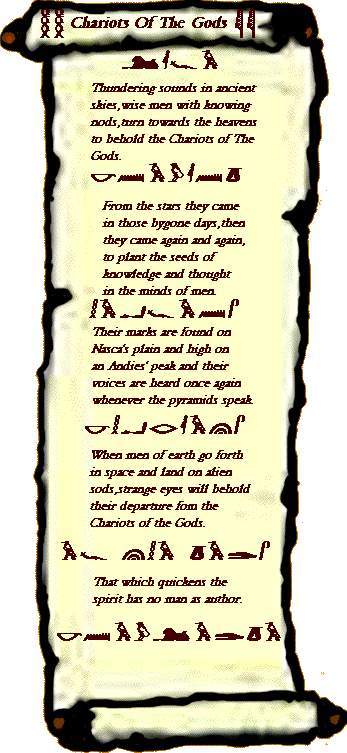 Chariots Of The Gods
Thundering sounds in ancient
skies,wise men with knowing
nods,turn towards the heavens
to behold the Chariots of The
Gods.
From the stars they came
in those bygone days,then
they came again and again,
to plant the seeds of
knowledge and thought
in the minds of men.
Their marks are found on
Nasca's plain and high on
an Andies' peak and their
voices are heard once again
whenever the pyramids speak.
When men of earth go forth
in space and land on alien
sods,strange eyes will behold
their departure fom the
Chariots of the Gods.
That which quickens the
spirit has no man as author.